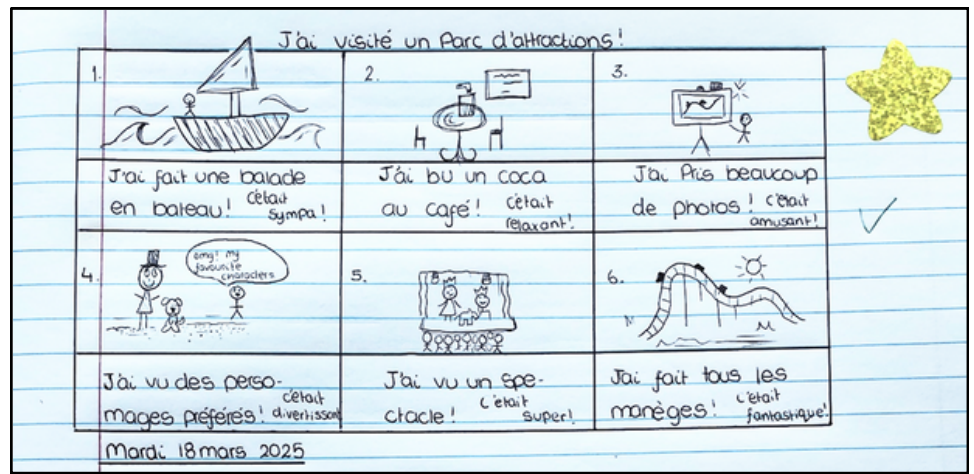 J'ai visité un Parc d'attractions!
1.
2.
3.
J'ai fait une balade
en bateau! c'était
sympa!
J'ai bu un coca
au café! c'était
relaxant!
J'ai Pris beaucoup
de photos! c'était
amusant!
4.
omg! my
favourite
characters
5.
6.
J'ai vu des perso-
mages préférés! c'était
divertissant
J'ai vu un spe-
ctacle! c'était
super!
J'ai fait tous les
manèges! c'était
fantastique!
Mardi 18 mars 2025